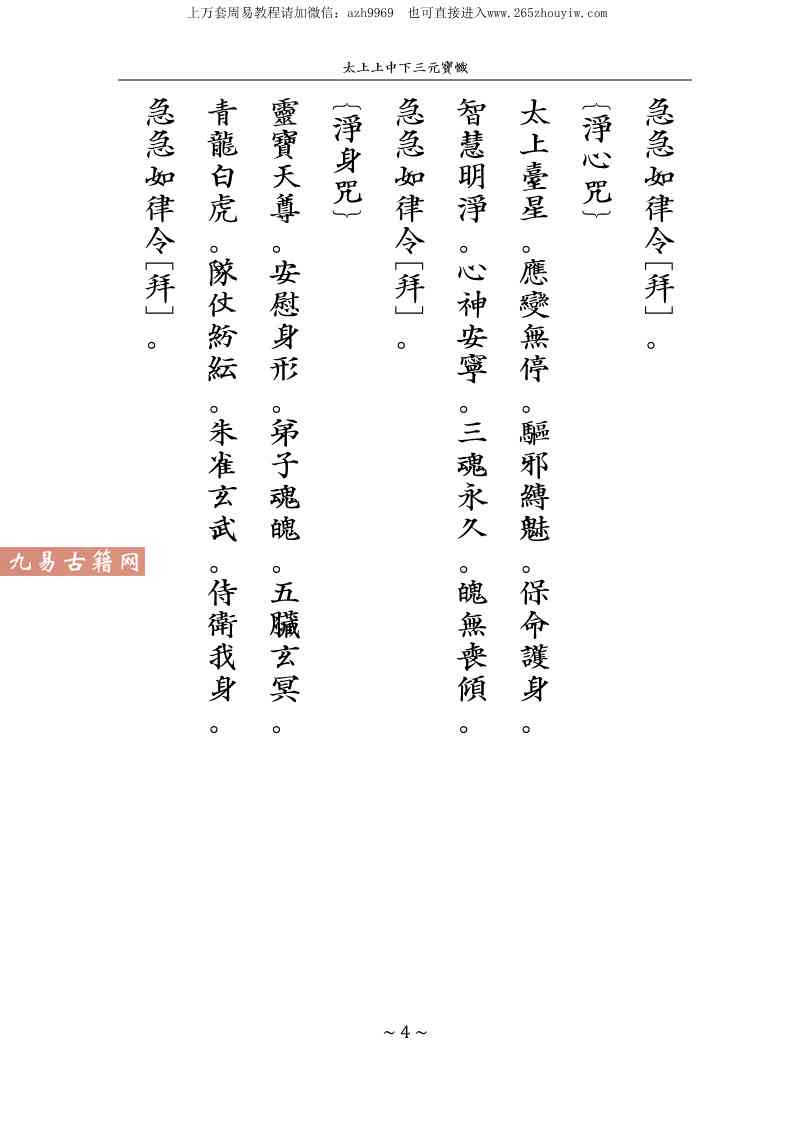 上万套周易教程请加微信：azh9969　也可直接进入www.265zhouyiw.com
太上上中下三元寶懺
急急如律令[拜]。
{淨心咒}
太上臺星。應變無停。驅邪縛魅。保命護身。
智慧明淨。心神安寧。三魂永久。魄無喪傾。
急急如律令[拜]。
{淨身咒}
靈寶天尊。安慰身形。弟子魂魄。五臟玄冥。
青龍白虎。隊仗紛紜。朱雀玄武。侍衛我身。
急急如律令[拜]。
九易古籍网
~ 4 ~